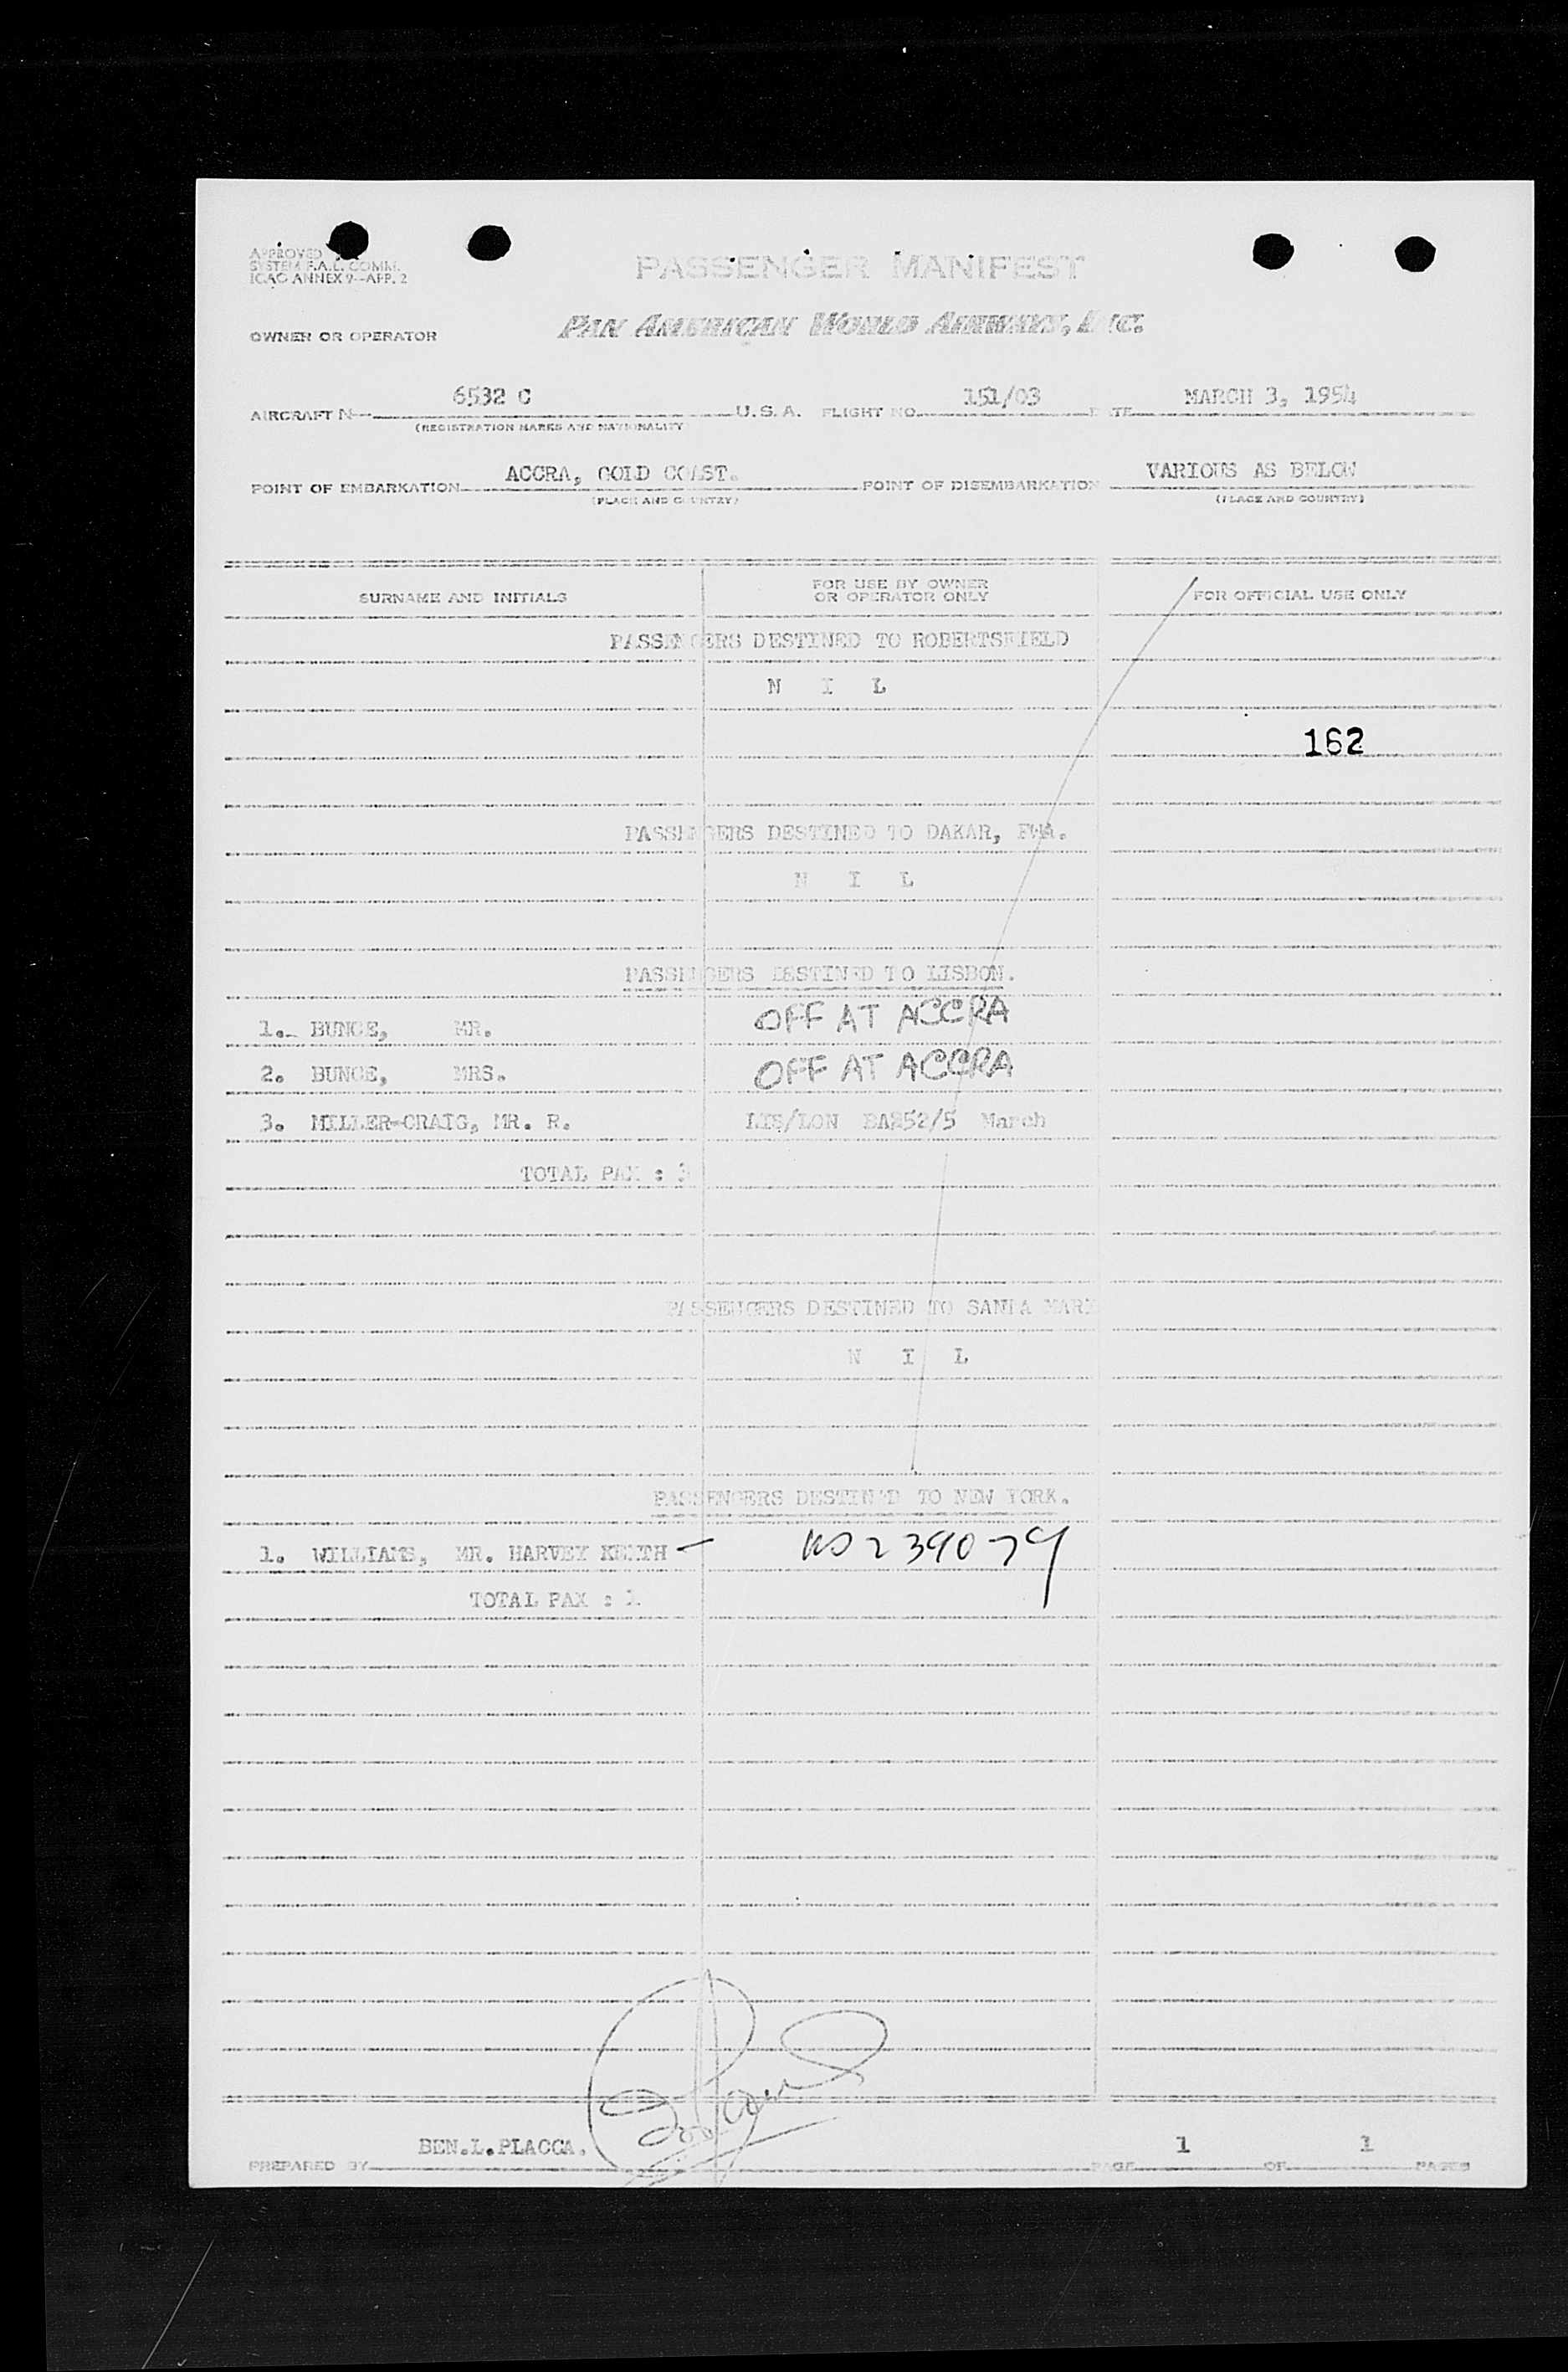 APPROVED
SYSTEM F.A.L. COMM.
ICAO ANNEX 9-APP. 2
PASSENGER MANIFEST
OWNER OR OPERATOR PAN AMERICAN WORLD AIRWAYS, INC.
AIRCRAFT N 6532 C U.S.A. FLIGHT NO. 151/03 DATE MARCH 3, 1954
(REGISTRATION MARKS AND NATIONALITY)
POINT OF EMBARKATION ACCRA, GOLD COAST. POINT OF DISEMBARKATION VARIOUS AS BELOW
(PLACE AND COUNTRY) (PLACE AND COUNTRY)
SURNAME AND INITIALS FOR USE BY OWNER OR OPERATOR ONLY FOR OFFICIAL USE ONLY
PASSENGERS DESTINED TO ROBERTSFIELD
N I L
162
PASSENGERS DESTINED TO DAKAR, FWA.
N I L
PASSENGERS DESTINED TO LISBON.
1. BUNCE, MR. OFF AT ACCRA
2. BUNCE, MRS. OFF AT ACCRA
3. MILLER-CRAIG, MR. R. LIS/LON BA252/5 March
TOTAL PAX : 3
PASSENGERS DESTINED TO SANTA MARI
N I L
PASSENGERS DESTINED TO NEW YORK.
1. WILLIAMS, MR. HARVEY KEITH — 239079
TOTAL PAX : 1
PREPARED BY BEN.L.PLACCA. PAGE 1 OF 1 PAGES